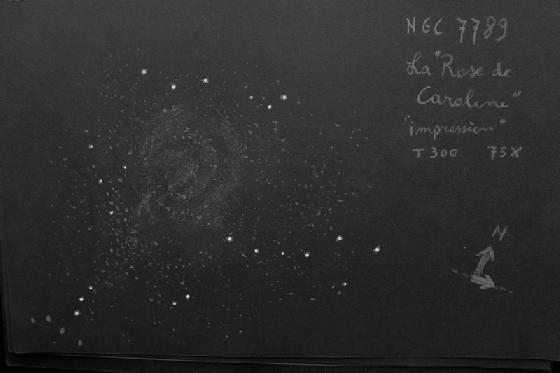 NGC 7789
La "Rose de
Caroline"
"impression"
T300 75X
N